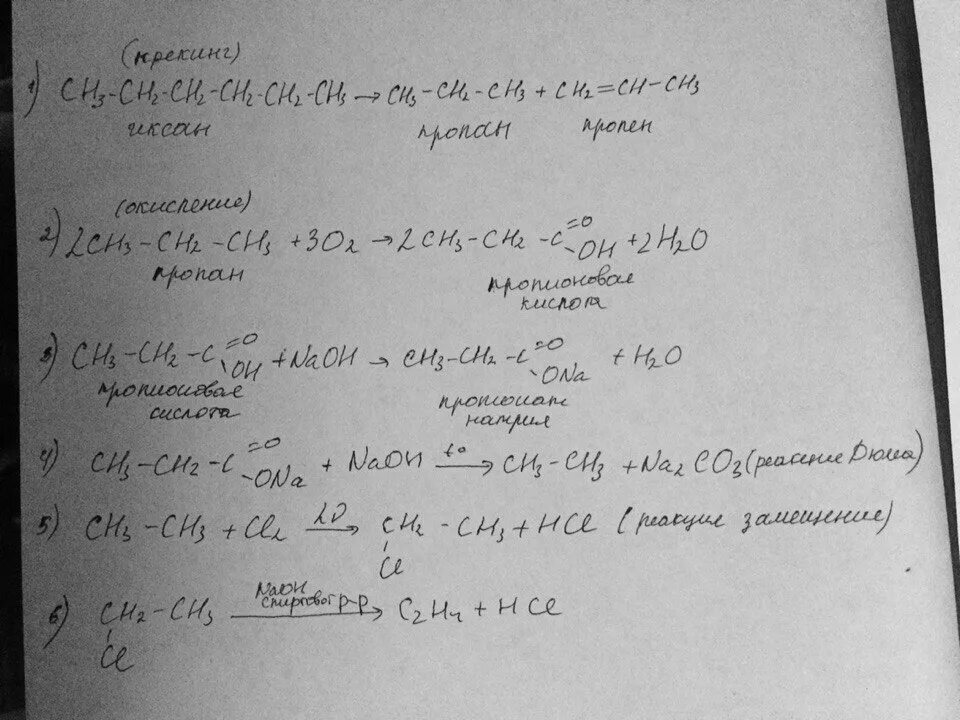 (крекинг)
1) CH3-CH2-CH2-CH2-CH2-CH3 → CH3-CH2-CH3 + CH2=CH-CH3
гиксан пропан пропен
(окисление)
2) 2CH3-CH2-CH3 + 3O2 → 2CH3-CH2-C=O-OH + 2H2O
пропан пропионовая
кислота
3) CH3-CH2-C=O-OH + NaOH → CH3-CH2-C=O-ONa + H2O
пропионовая пропионат
кислота натрия
4) CH3-CH2-C=O-ONa + NaOH t° → CH3-CH3 + Na2CO3 (реакция Дюма)
5) CH3-CH3 + Cl2 → CH2-CH3 + HCl (реакция замещение)
Cl
NaOH
спиртовог р-р
6) CH2-CH3 → C2H4 + HCl
Cl